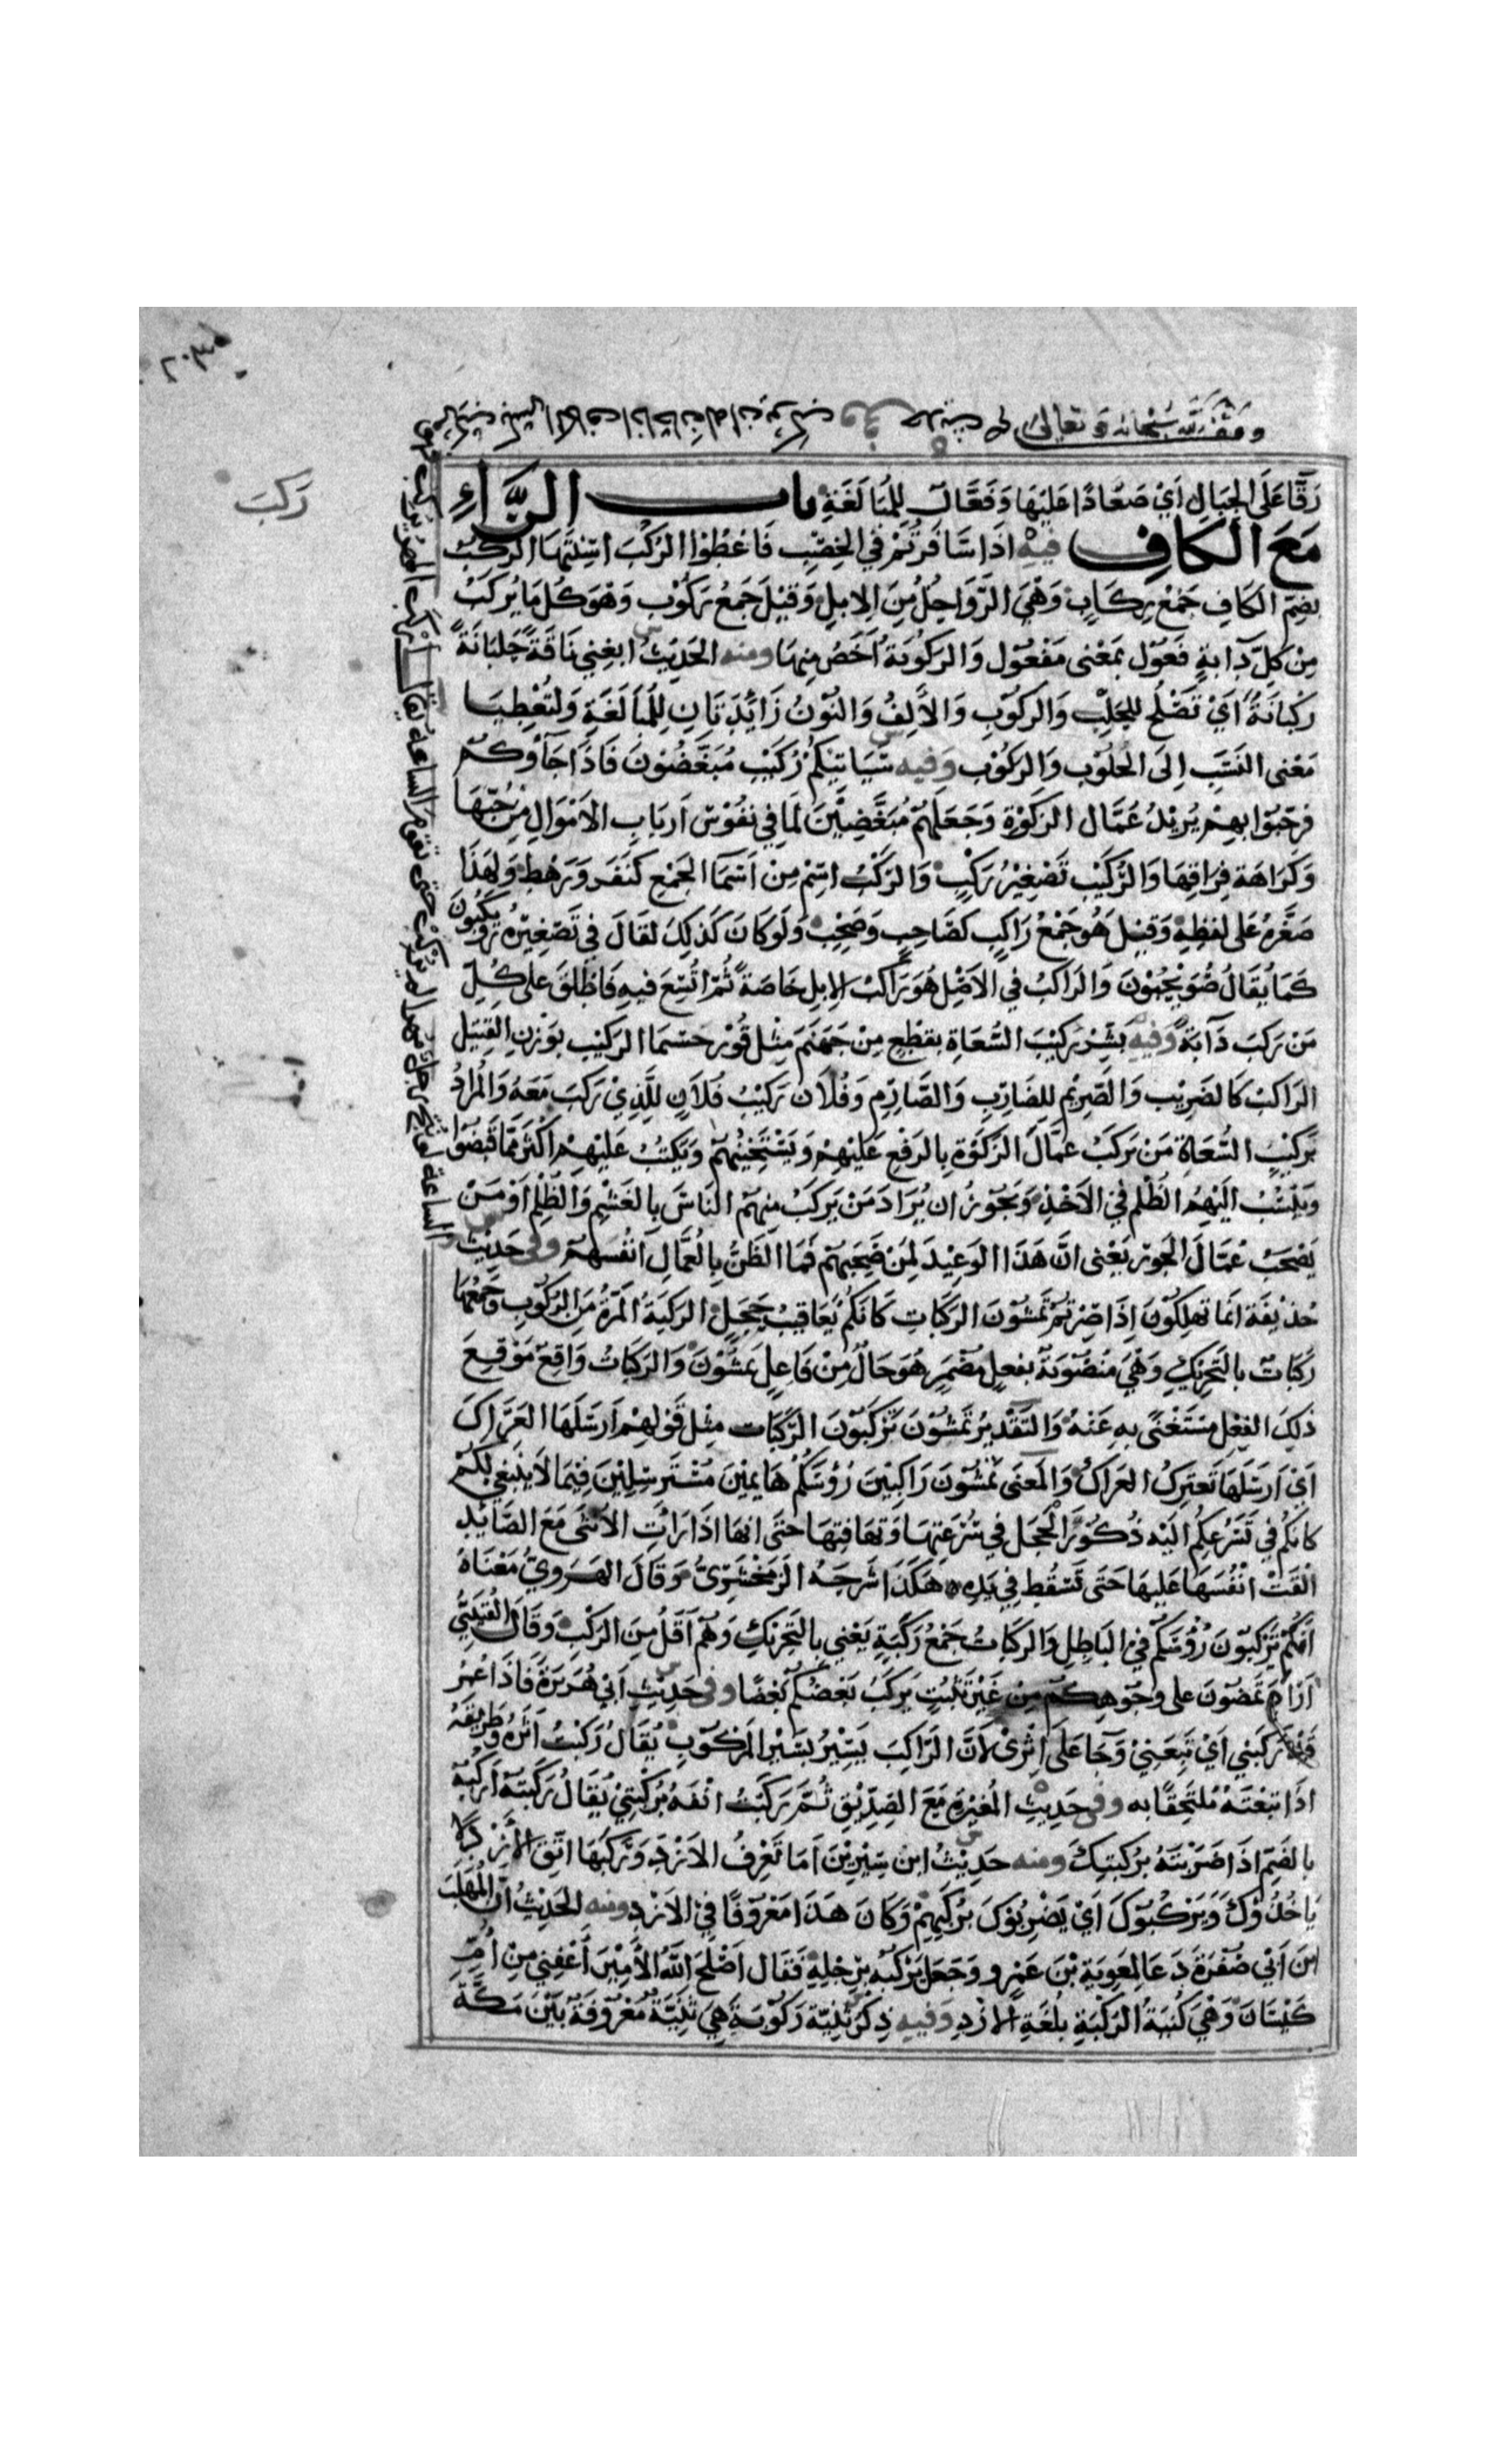 ٢٠٣
وقف لله سبحانه وتعالى
ركب
رَقَّا عَلَى الجِبَالِ اَيْ صَعَّادًا عَلَيْهَا وَفَعَّالٌ لِلْمُبَالَغَةِ بابُ الرَّاءِ
مَعَ الكَافِ فيه اذَا سَافَرْتُمْ فِي الخِصْبِ فَاعْطُوْا الرُكُبَ اسِنَّتَهَا الرُكُبُ
بِضَمِ الكَافِ جَمْعُ رِكَابٍ وَهْيَ الرَّوَاحِلُ مِنَ الاِبِلِ وَقِيْلَ جَمْعُ رَكُوْبٍ وَهْوَ كُلُ مَا يُرْكَبُ
مِنْ كلِّ دَابةٍ فَعُوْل بِمَعْنى مَفْعُوْل وَالرَكُوْبَةُ اَخَصُ مِنهَا ومنه الحَدِيْثُ ابغِنِي نَاقَةً حَلْبَانَةً
رَكْبَانَةً اَيْ تَصْلُحُ لِلْحَلْبِ وَالرُكُوْبِ وَالاَلِفُ وَالنُوْنُ زَائِدَتَانِ لِلْمُبَالَغَةِ وَلِتُعْطِيَا
مَعْنى النَسَبِ اِلَى الحَلُوْبِ وَالرَكُوْبِ وَفيه سَيَاتِيْكُمْ رُكَيْبٌ مُبَغَّضُوْنَ فَاذَا جَاؤُكُم
فرَحِّبُوْا بِهِمْ يُرِيْدُ عُمَّال الزَكٰوةِ وَجَعَلَهُمْ مُبَغَّضِيْنَ لِمَا فِي نفُوْسِ اَربَابِ الاَمْوَالِ مِنْ حُبِّهَا
وَكَرَاهَة فِرَاقِهَا وَالرُكَيْبُ تَصْغِيْرُ رَكْبٍ وَالرَكْبُ اسْمٌ مِنْ اَسْمَا الجَمْعِ كَنَفَرٍ وَرَهْطٍ وَلِهَذَا
صَغَّرَهُ عَلى لفظِهِ وَقيْلَ هُوَ جَمْعُ رَاكِبٍ كَصَاحِبٍ وَصَحْبٍ وَلَوْ كَانَ كَذلِكَ لَقَالَ فِي تَصْغِيْرِهِ رُوَيْكِبُونَ
كَمَا يُقَالُ صُوَيْحِبُوْنَ وَالرَاكِبُ فِي الاَصْلِ هُوَ رَاكِبُ الاِبِلِ خَاصَةً ثُمَّ اتُّسِعَ فيهِ فَاطْلِقَ عَلى كُلِّ
مَنْ رَكِبَ دَابَّةً وَفيه بَشِّرْ رَكِيْبَ السُّعَاةِ بقِطْعٍ مِنْ جَهَنَّمَ مِثْلِ قُوْرِ حِسْمَا الرَكِيْبُ بِوَزْنِ القَتِيْلِ
الرَاكِبُ كَالضَرِيْبِ وَالصَّرِيْمِ لِلضَّارِبِ وَالصَّارِمِ وَفُلاَن رَكِيْبُ فُلاَنٍ لِلَّذِيْ يَرْكَبُ مَعَهُ وَالمُرَادُ
بِرَكِيْبِ السُّعَاةِ مَنْ يَرْكَبُ عمَّالَ الزَكٰوةِ بِالرَفْعِ عَلَيْهِمْ وَيَسْتَخِيْنُهُمْ وَيَكْتُبُ عَلَيْهِمْ اَكْثَرَ مِمَّا قَبَضُوْا
وَيَنْسُبُ اليْهِمُ الظُلْمَ فِي الاَخْذِ وَيَجُوْزُ ان يُرَادَ مَنْ يَرْكَبُ مِنهُمْ النَاسَ بِالغَشْمِ وَالظُلْمِ اَوْ مَنْ
يَصْحَبُ عُمَّالَ الجَوْرِ يَعْنى انَّ هَذَا الوَعِيْدَ لِمَنْ صَحِبَهُمْ فَمَا الظَنُّ بِالعُمَّالِ اَنْفُسِهِمْ وفى حَدِيْث
حُذَيْفَةَ انَمَا تَهلِكُوْنَ اِذَا صِرْتُمْ تَمْشُوْنَ الرَكَبَاتِ كَانَكُمْ يَعَاقِيْبُ حَجَلٍ الرَكْبَةُ المَرَّةُ مِنَ الرُكُوْبِ وَجَمْعُهَا
رَكَبَاتٌ بالتَحْرِيْكِ وَهْيَ مَنْصُوْبَةٌ بِفعلٍ مُضْمَرٍ هُوَ حَالٌ مِنْ فَاعِلِ تَمْشُوْنَ وَالرَكَبَاتُ وَاقِعٌ مَوْقِعَ
ذلِكَ الفِعْلِ مُسْتَغْنًى بِهِ عَنْهُ وَالتَقْدِيْرُ تَمْشُوْنَ تَرْكَبُوْنَ الرَكَبَاتِ مِثْل قَوْلِهِمْ اَرْسَلَهَا العِرَاكَ
اَيْ اَرْسَلَهَا تَعْتَرِكُ العِرَاكَ وَالمَعْنَى تَمْشُوْنَ رَاكِبِيْنَ رُؤُسَكُمْ هَايِمِيْنَ مُسْتَرسِلِيْنَ فِيْمَا لاَ يَنْبَغِي لكُمْ
كَانَكُمْ فِي تَسَرُّعِكُم الَيْهِ ذُكُوْرَ الحَجَلِ فِي سُرْعَتِهَا وَتَهَافُتِهَا حَتَى انهَا اذَا رَاَتِ الاُنثَى مَعَ الصَّائِدِ
الْقَتْ انْفُسَهَا عَلَيهَا حَتَى تَسْقُطَ فِي يَدِهِ هَكَذَا شَرحَهُ الزَمَخْشَرِيُّ وَقَالَ الهَرَوِيُّ مَعْنَاهُ
اَنَكُمْ تَرْكَبُوْنَ رُؤُسَكُمْ فِي البَاطِلِ وَالرَكَبَاتُ جَمْعُ رَكَبَةٍ يَعْنِي بِالتَحْرِيْكِ وَهُمْ اَقَلُ مِنَ الرَكْبِ وَقَالَ القُتَيْبِيُّ
اَرَادَ تَمْضُوْنَ عَلى وُجُوْهِكُمْ مِنْ غَيْرِ تَثَبُّتٍ يَركَبُ بَعْضُكُمْ بَعْضًا وفى حَدِيْثِ اَبِي هُرَيْرَةَ فَاذَا عُمَرُ
قَدْ رَكِبَنِي اَيْ تَبِعَنِيْ وَجَا عَلَى اثْرِيْ لاَنَّ الرَاكِبَ يَسِيْرُ بِسَيْرِ المَرْكُوْبِ يُقَالُ رَكِبْتُ اَثَرَهُ وَطَرِيْقَهُ
اذَا تبِعْتَهُ مُلتَحِقًا بِهِ وفى حَدِيْثِ المُغِيْرَةِ مَعَ الصِدِّيْقِ ثُمَّ رَكَبْتُ انْفَهُ بِرُكْبَتِيْ يُقَالُ رَكَبْتُهُ اَرْكُبُهُ
بِالضَمِّ اذَا ضَرَبْتَهُ بِرُكْبَتِكَ ومنه حَدِيْثُ ابن سِيْرِيْنَ اَمَا تَعْرِفُ الاَزْدَ وَرُكَبَهَا اتَّقِ الاَزْدَ لاَ
يَاخُذُوْكَ وَيَرْكُبُوْكَ اَيْ يَضْرِبُوْكَ بِرُكَبِهِمْ وَكَانَ هَذَا مَعْرُوْفًا فِي الاَزْدِ ومنه الحَدِيْثُ انَّ المُهَلَّبَ
ابْنَ اَبِي صُفْرَةَ دَعَا لِمُعٰوِيَةَ بْنَ عَمْرٍو وَجَعَلَ يَرْكُبُهُ بِرِجْلِهِ فَقَالَ اَصْلَحَ اللّٰهُ الاَمِيْرَ اَعْفِنِي مِنْ اُمِّ
كَيْسَانَ وَهْيَ كُنْيَةُ الرُكْبَةِ بِلُغَةِ الاَزْدِ وَفيه ذِكْرُ ثَنِيَّةِ رَكُوْبَةَ هِيَ ثَنِيَّةٌ مَعْرُوْفَةٌ بَيْنَ مَكَّةَ